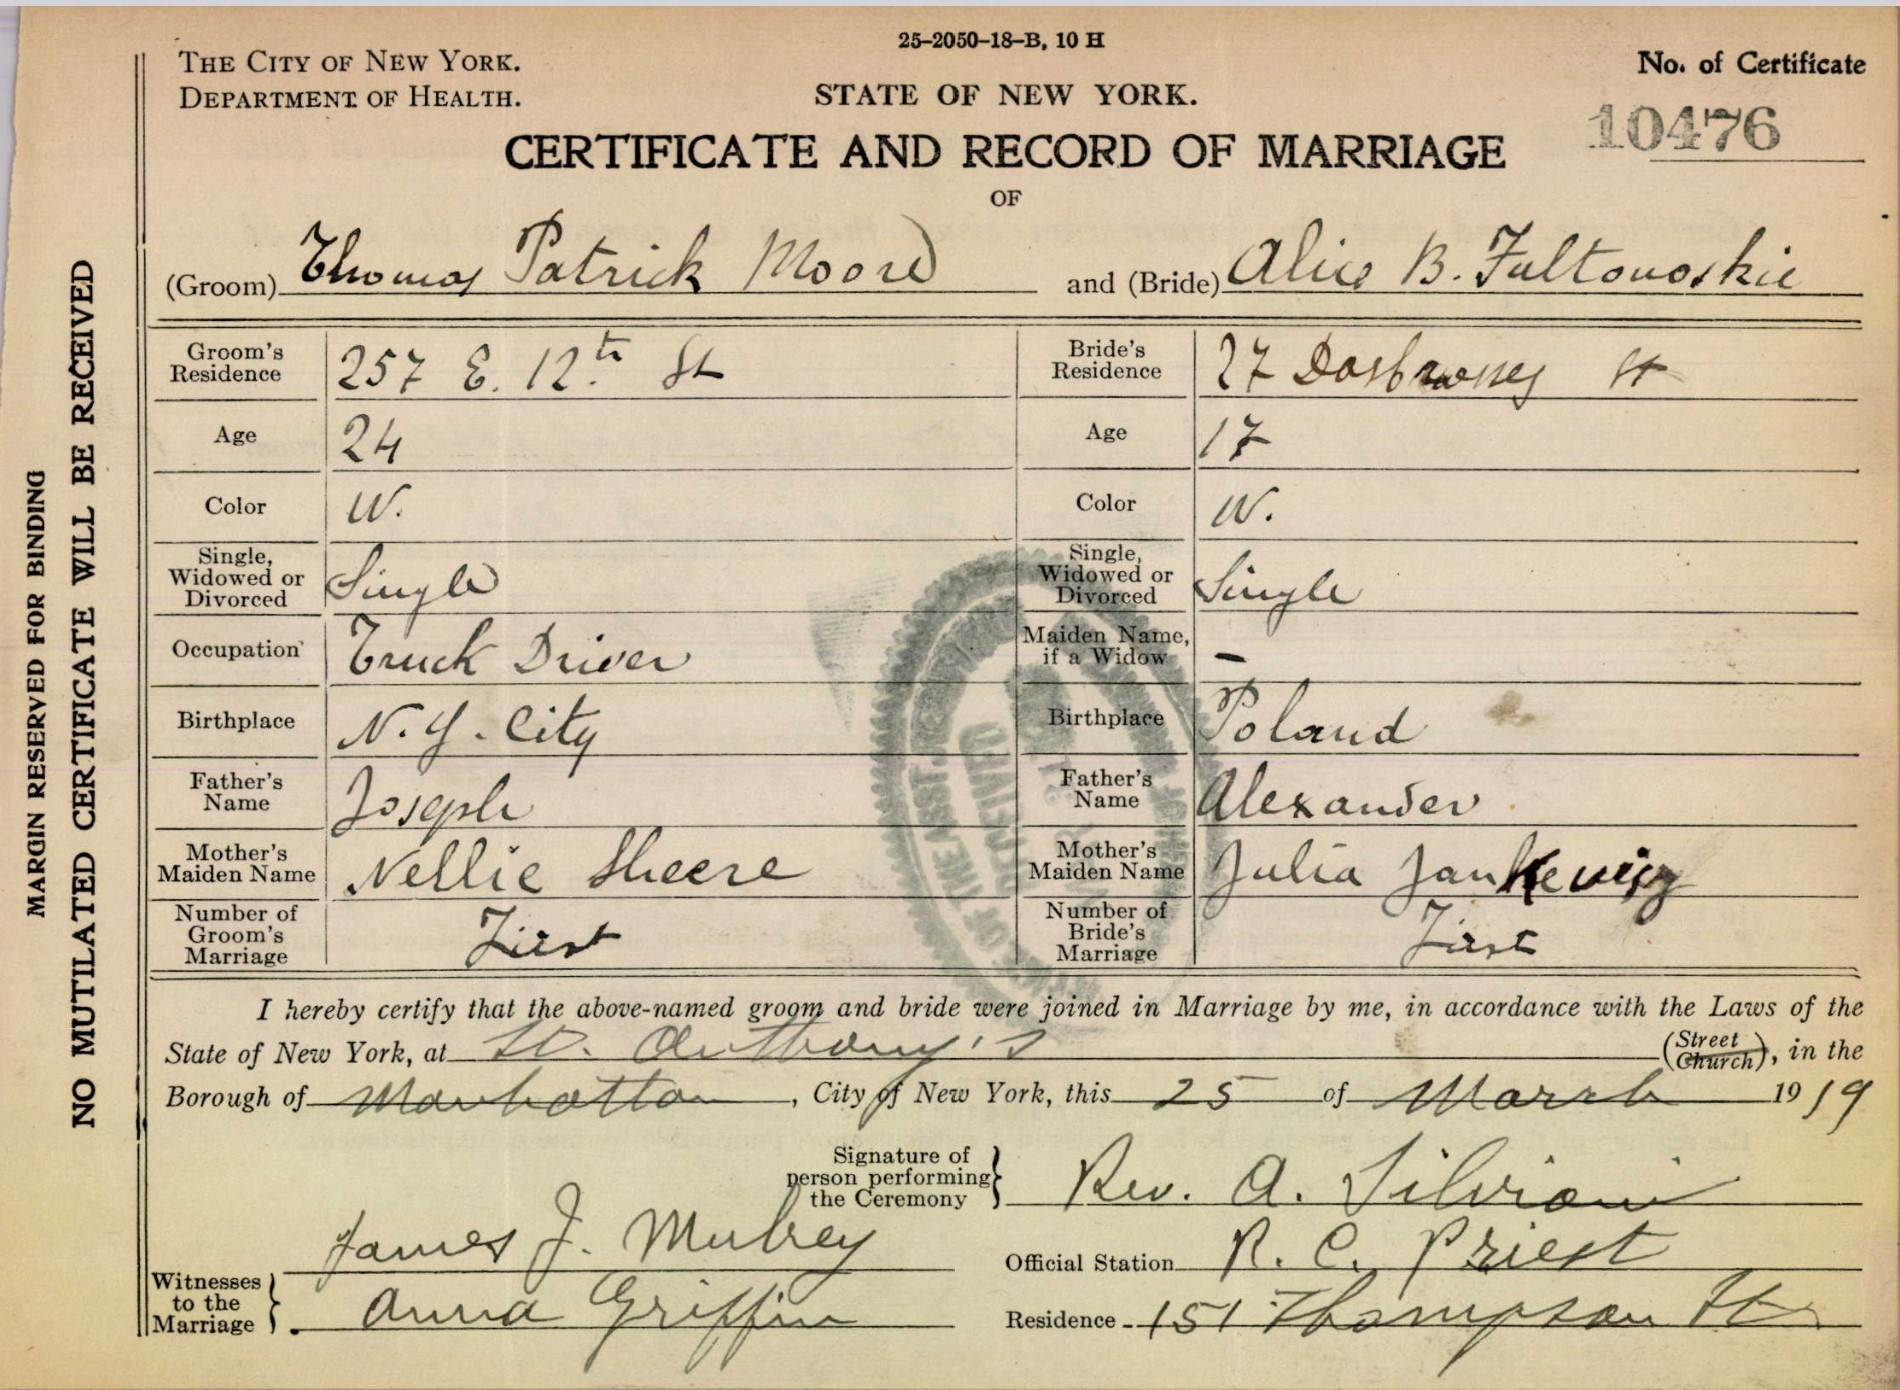 25-2050-18-B, 10 H
THE CITY OF NEW YORK.
DEPARTMENT OF HEALTH.
STATE OF NEW YORK.
No. of Certificate
10476
CERTIFICATE AND RECORD OF MARRIAGE
OF
(Groom) Thomas Patrick Moore and (Bride) Alice B. Fultonoskie
Groom's Residence 257 E. 12th St Bride's Residence 27 Dosbrosses St
Age 24 Age 17
Color W. Color W.
Single, Widowed or Divorced Single Single, Widowed or Divorced Single
Occupation Truck Driver Maiden Name, if a Widow –
Birthplace N.Y. City Birthplace Poland
Father's Name Joseph Father's Name Alexander
Mother's Maiden Name Nellie Sheere Mother's Maiden Name Julia Jankewicz
Number of Groom's Marriage First Number of Bride's Marriage First
I hereby certify that the above-named groom and bride were joined in Marriage by me, in accordance with the Laws of the
State of New York, at St. Anthony's (Street Church), in the
Borough of Manhattan, City of New York, this 25 of March 1919
Signature of person performing the Ceremony Rev. A. Silvioni
James J. Mulrey
Official Station R. C. Priest
Witnesses to the Marriage Anna Griffin
Residence 151 Thompson St
MARGIN RESERVED FOR BINDING
NO MUTILATED CERTIFICATE WILL BE RECEIVED